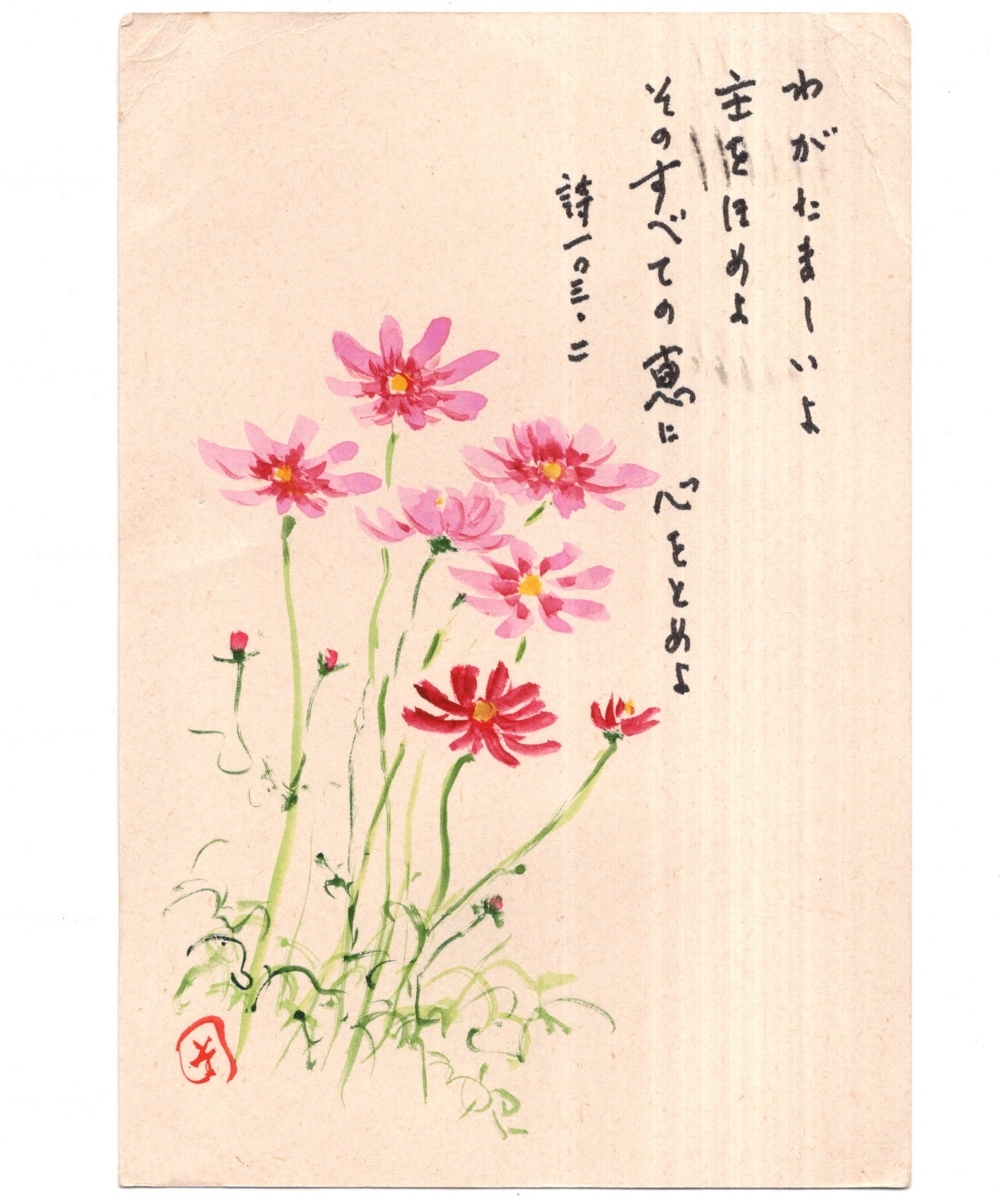 わがたましいよ
主をほめよ
そのすべての恵に 心をとめよ
詩一〇三・二